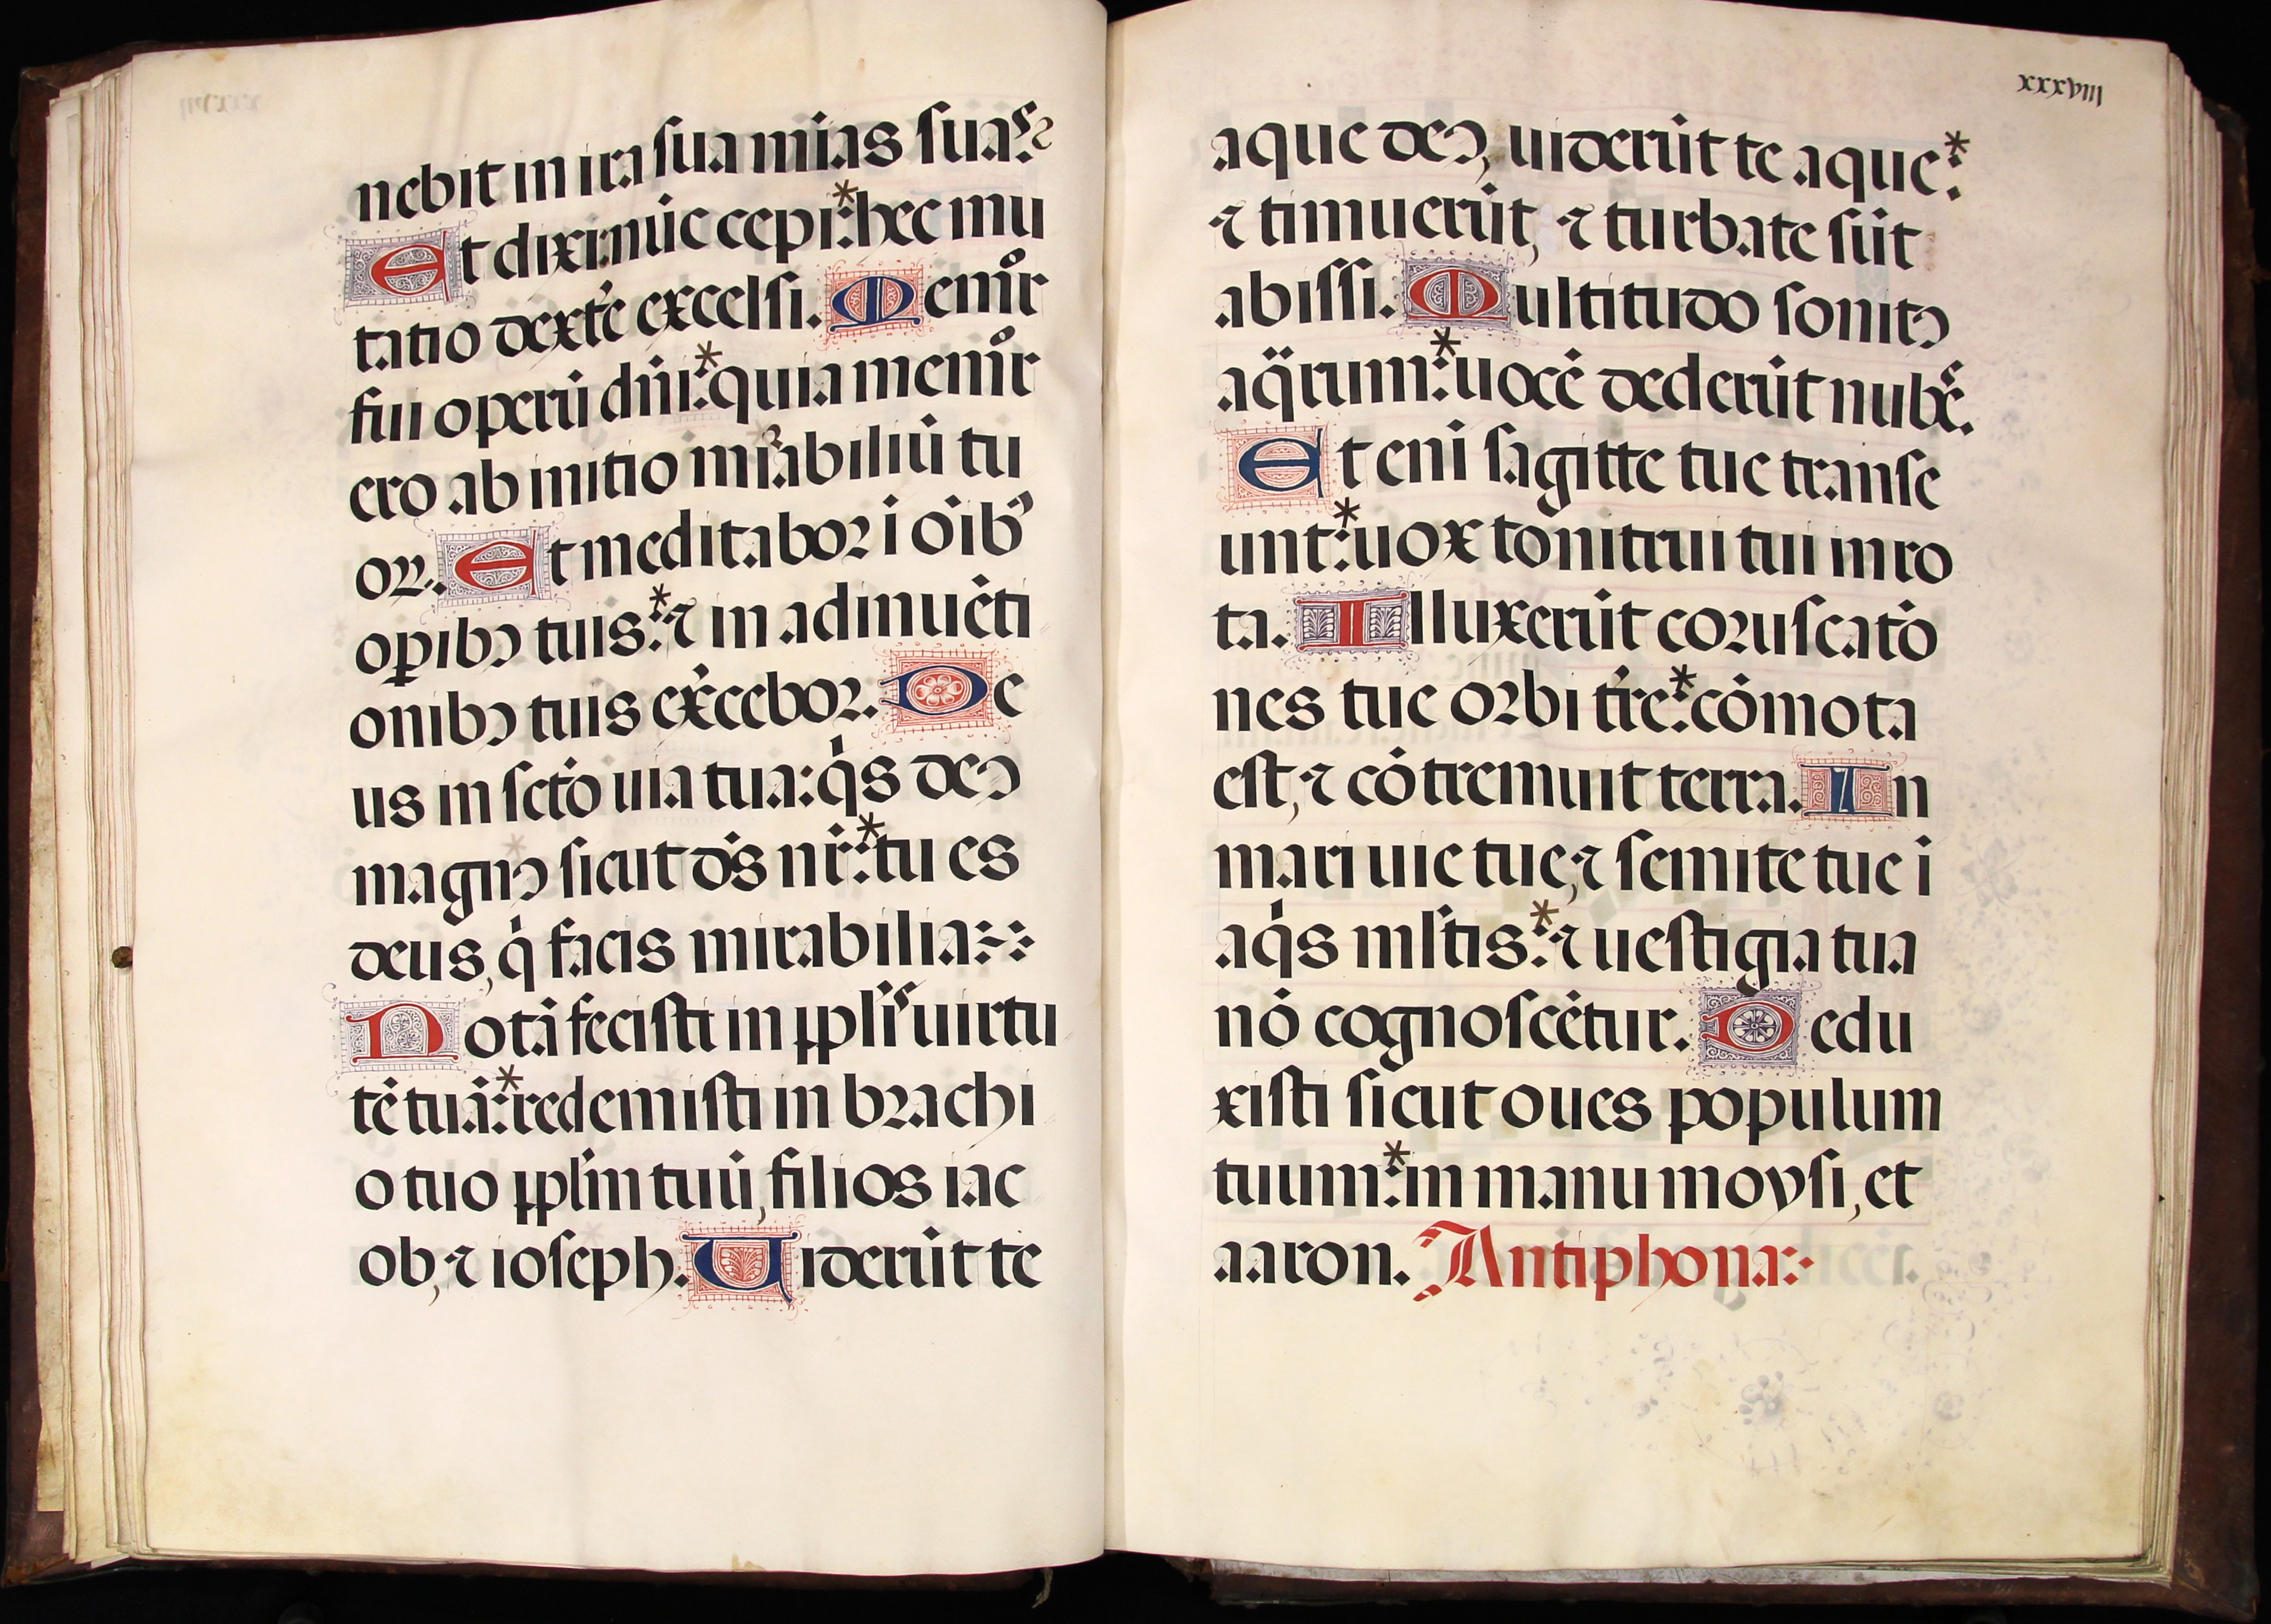 nebit in ira sua mīas suas?
Et dixi: nūc cepi: * hec mu
tatio dext'e excelsi. Memor
fui operū dn̄i: * quia memor
ero ab initio mirabiliū tu
oꝝ. Et meditaboꝛ ī oīb'
oꝑibꝰ tuis: * ⁊ in adinuēti
onibꝰ tuis ex̄cebor. De
us in sctō uia tua: qͥs deꝰ
magnꝰ sicut dꝰs nr̄: * tu es
deus, qͥ facis mirabilia:⁘
Notā fecisti in ppl̄is uirtu
tē tuā: * redemisti in brachi
o tuo ppl̄m tuū, filios iac
ob, ⁊ ioseph. Uiderūt te
xxxviii
aque deꝰ, uiderūt te aque: *
⁊ timuerūt, ⁊ turbate sūt
abissi. Multitudo sonitꝰ
aq̈rum: * uocē dederūt nubes.
Et enī sagitte tue transe
unt: * uox tonitrui tui in ro
ta. Illuxerūt coruscatō
nes tue orbi tr̄e: * cōmota
est, ⁊ cōtremuit terra. In
mari uie tue, ⁊ semite tue ī
aqͥs ml̄tis: * ⁊ uestigia tua
nō cognoscētur. Dedu
xisti sicut oues populum
tuum: * in manu moysi, et
aaron. Antiphona:⁘